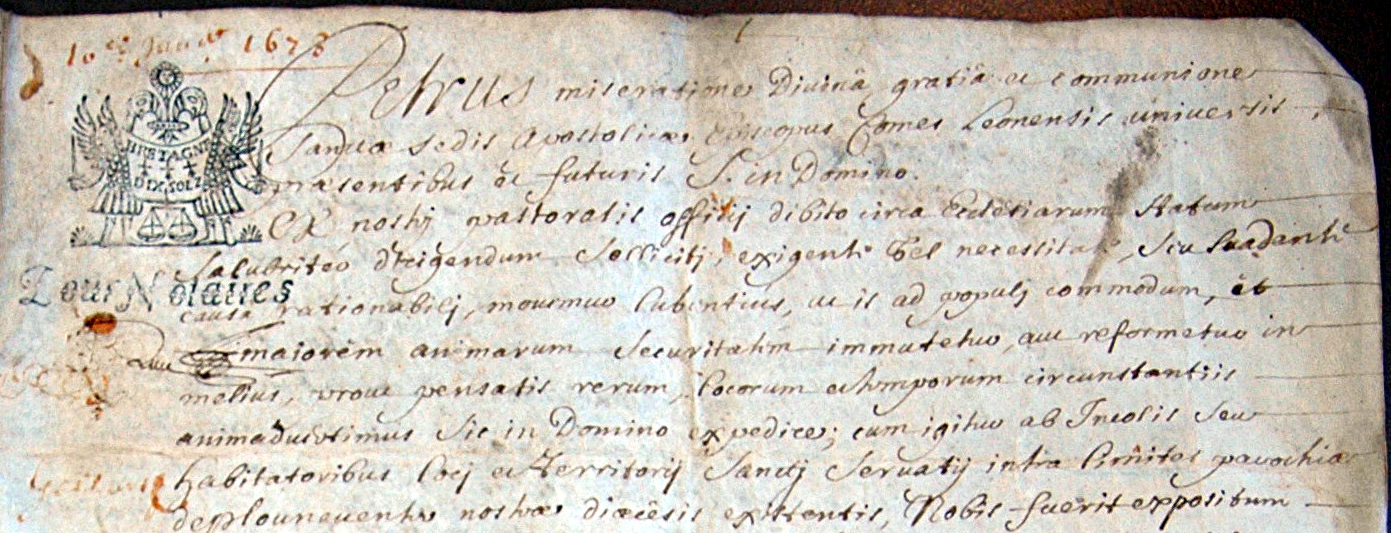 10 Janv 1678
Petrus miseratione Divinâ gratiâ et communione
BRETAGNE
DIX SOLZ
Sanctæ sedis Apostolicæ, Episcopus Comes Leonensis universis
præsentibus et futuris S. in Domino.
Ex nostrj pastoralis officij debito circa Ecclesiarum statum
salubriter dirigendum solliciti, exigenti vel necessitate, seu suadenti
Pour Notaires
causa rationabilj, movemur lubentius, ut is ad populj commodum, et
maiorem animarum securitatem immutetur, aut reformetur in
melius, prout pensatis rerum, locorum et temporum circunstantiis
animaduertimus sic in Domino expedire; cum igitur ab Incolis seu
habitatoribus locj et Territorij Sanctj Servatij intra limites parochiæ
de plouneuenter nostræ diœcesis existentis, Nobis fuerit expositum